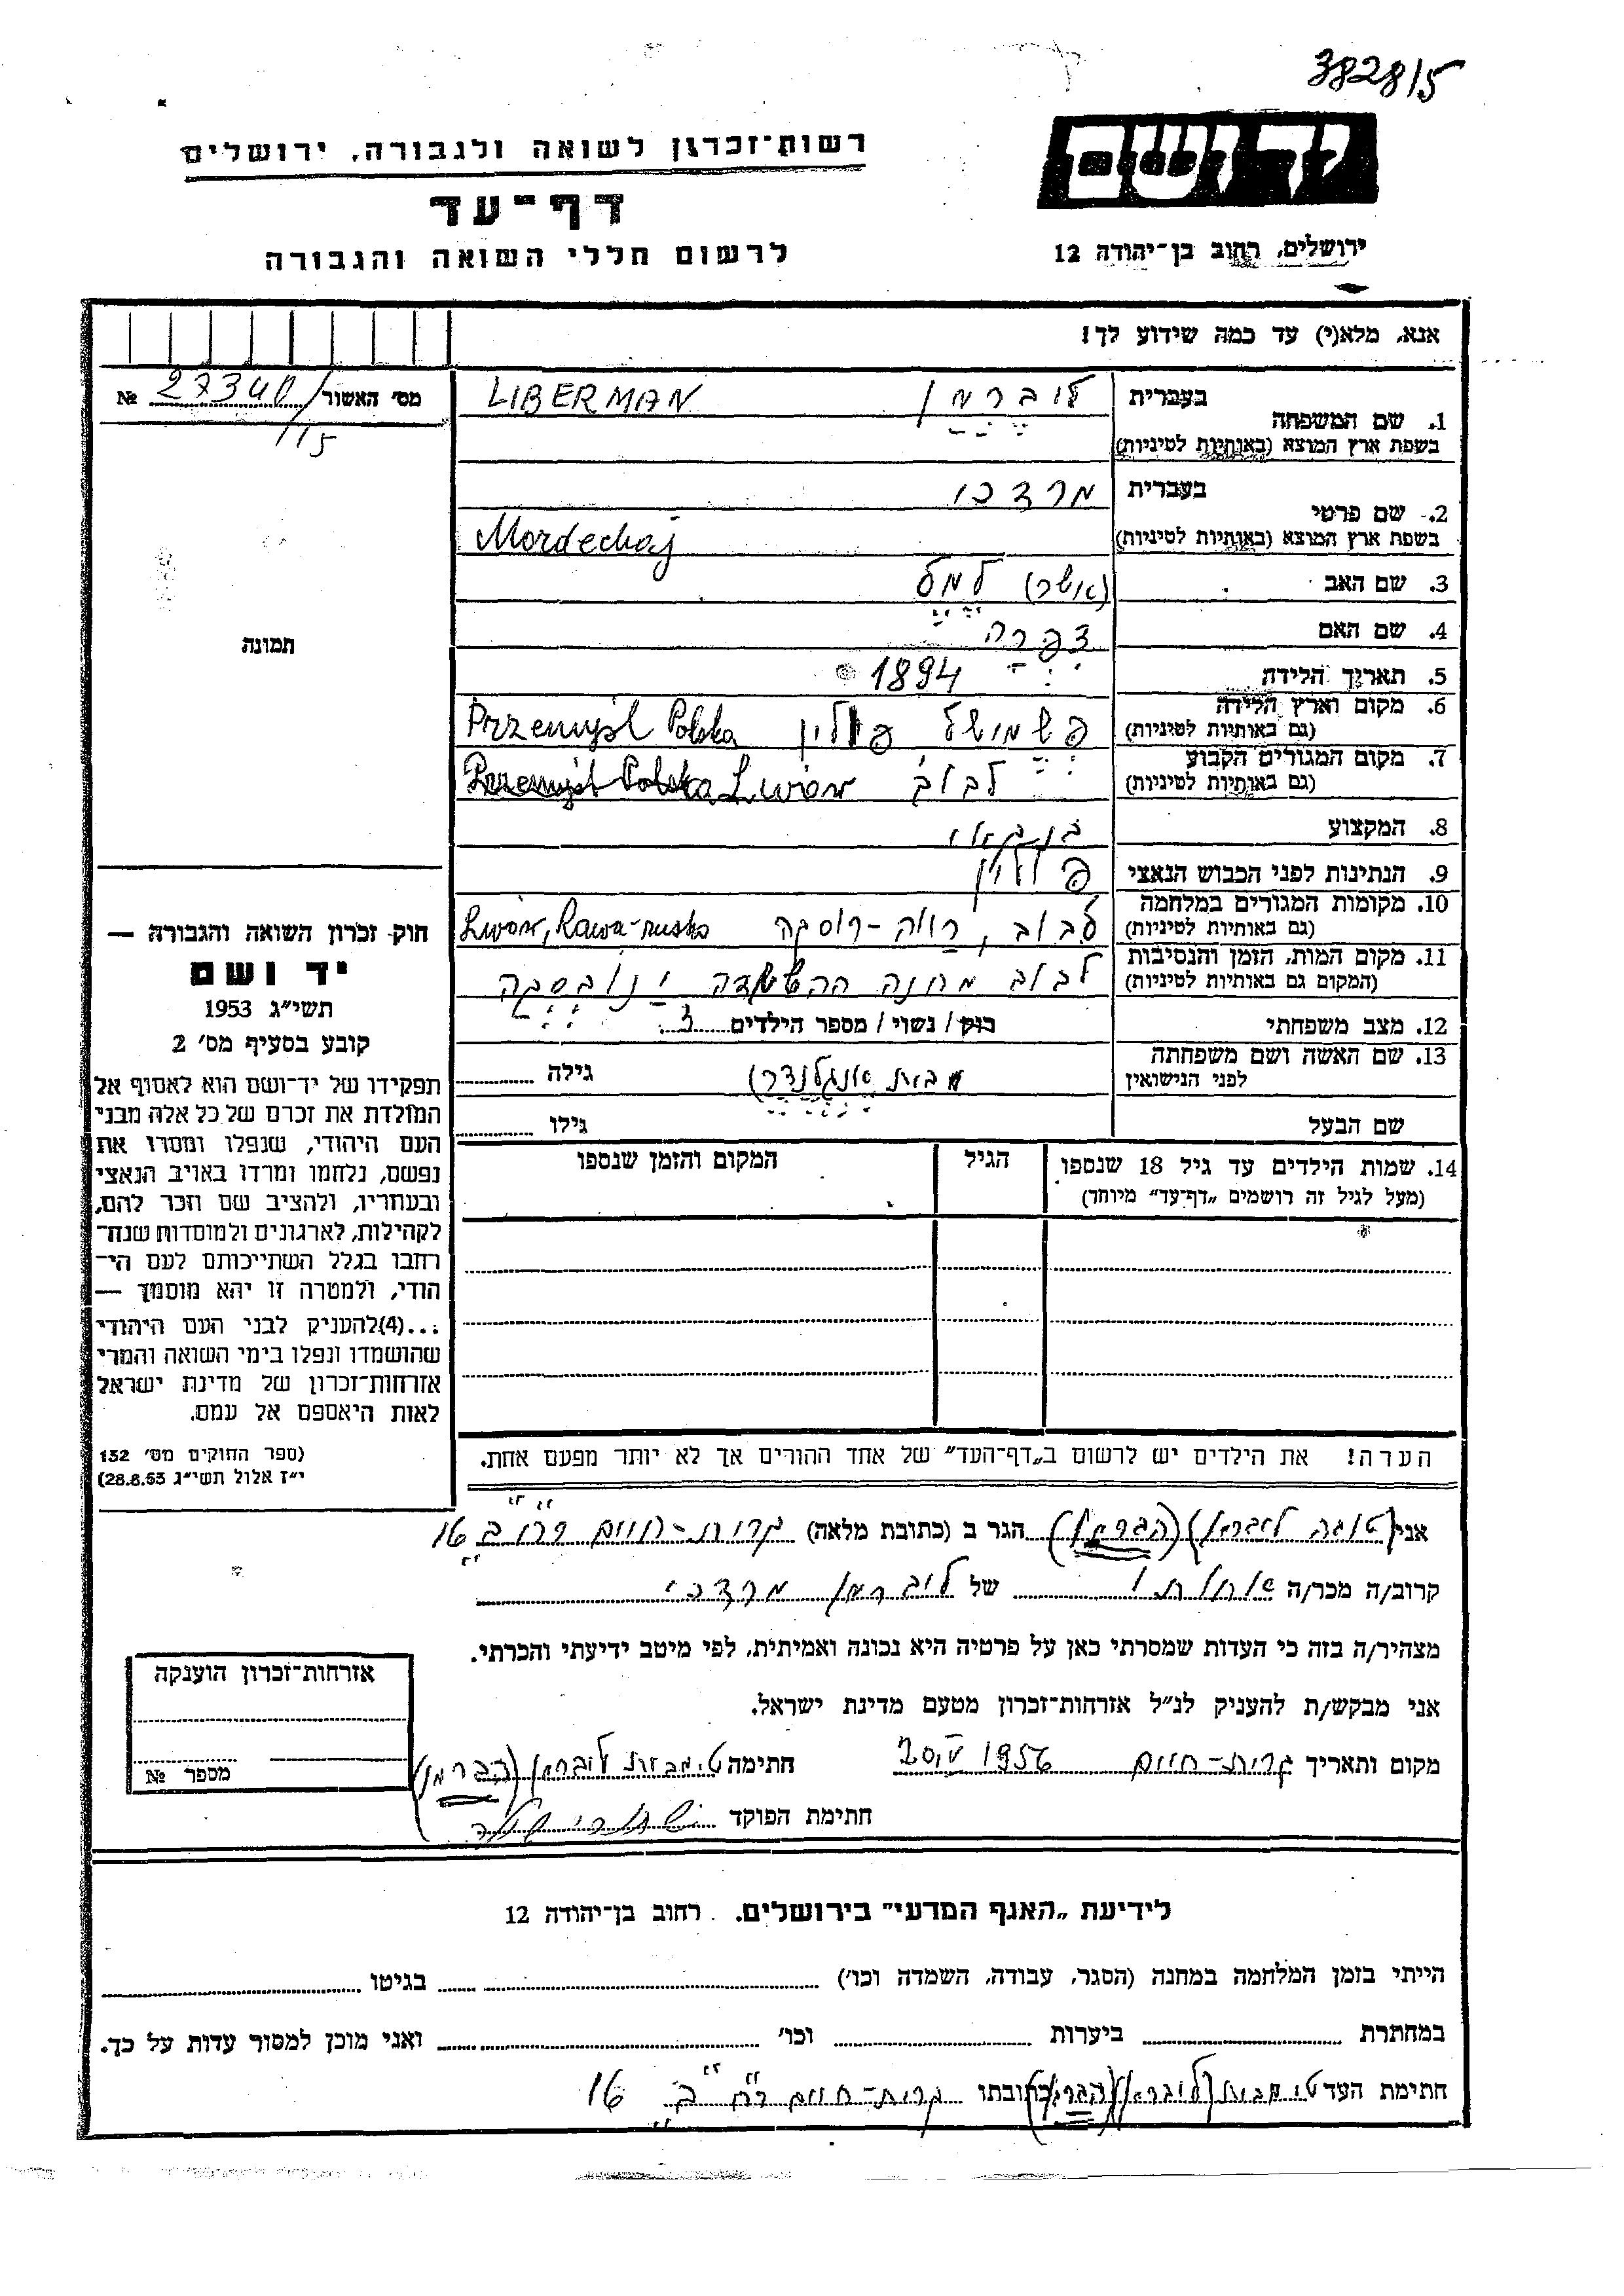 382815
רשות־זכרון לשואה ולגבורה, ירושלים
דף־עד
לרשום חללי השואה והגבורה
יד ושם
ירושלים, רחוב בן־יהודה 12
אנא, מלא(י) עד כמה שידוע לך!
מס' האשור № 27340/15
בעברית ליברמן LIBERMAN
1. שם המשפחה
בשפת ארץ המוצא (באותיות לטיניות)
בעברית מרדכי
2. שם פרטי
בשפת ארץ המוצא (באותיות לטיניות) Mordechaj
3. שם האב (אשר) למל
4. שם האם צפרה
5. תאריך הלידה 1894
6. מקום וארץ הלידה פשמושל פולין Przemyśl Polska
(גם באותיות לטיניות)
7. מקום המגורים הקבוע לבוב Przemyśl Polska Lwów
(גם באותיות לטיניות)
8. המקצוע בנקאי
9. הנתינות לפני הכבוש הנאצי פולין
10. מקומות המגורים במלחמה לבוב, רווה-רוסקה Lwów, Rawa-ruska
(גם באותיות לטיניות)
11. מקום המות, הזמן והנסיבות לבוב מחנה ההשמדה ינובסקה
(המקום גם באותיות לטיניות)
12. מצב משפחתי רווק/ נשוי/ מספר הילדים 3
13. שם האשה ושם משפחתה מבית אנגלנדר) גילה
לפני הנישואין
שם הבעל גילו
14. שמות הילדים עד גיל 18 שנספו הגיל המקום והזמן שנספו
(מעל לגיל זה רושמים „דף־עד" מיוחד)
תמונה
חוק זכרון השואה והגבורה —
יד ושם
תשי"ג 1953
קובע בסעיף מס' 2
תפקידו של יד־ושם הוא לאסוף אל
המולדת את זכרם של כל אלה מבני
העם היהודי, שנפלו ומסרו את
נפשם, נלחמו ומרדו באויב הנאצי
ובעוזריו, ולהציב שם וזכר להם,
לקהילות, לארגונים ולמוסדות שנח־
רבו בגלל השתייכותם לעם הי־
הודי, ולמטרה זו יהא מוסמך —
...(4)להעניק לבני העם היהודי
שהושמדו ונפלו בימי השואה והמרי
אזרחות־זכרון של מדינת ישראל
לאות היאספם אל עמם.
(ספר החוקים מס' 132
י"ז אלול תשי"ג 28.8.53)
הערה! את הילדים יש לרשום ב„דף־העד" של אחד ההורים אך לא יותר מפעם אחת.
אני (טובה ליברמן) (הברמן) הגר ב (כתובת מלאה) קרית-חיים רחוב ב 16
קרוב/ה מכר/ה אחותי של ליברמן מרדכי
מצהיר/ה בזה כי העדות שמסרתי כאן על פרטיה היא נכונה ואמיתית, לפי מיטב ידיעתי והכרתי.
אני מבקש/ת להעניק לנ"ל אזרחות־זכרון מטעם מדינת ישראל.
מקום ותאריך קרית-חיים 20.V 1956 חתימה ליברמן (הברמן)
חתימת הפוקד
אזרחות־זכרון הוענקה
מספר №
לידיעת „האגף המדעי" בירושלים. רחוב בן־יהודה 12
הייתי בזמן המלחמה במחנה (הסגר, עבודה, השמדה וכו') בגיטו
במחתרת ביערות וכו' ואני מוכן למסור עדות על כך.
חתימת העד (ליברמן) (הברמן) כתובתו קרית-חיים רח' ב 16